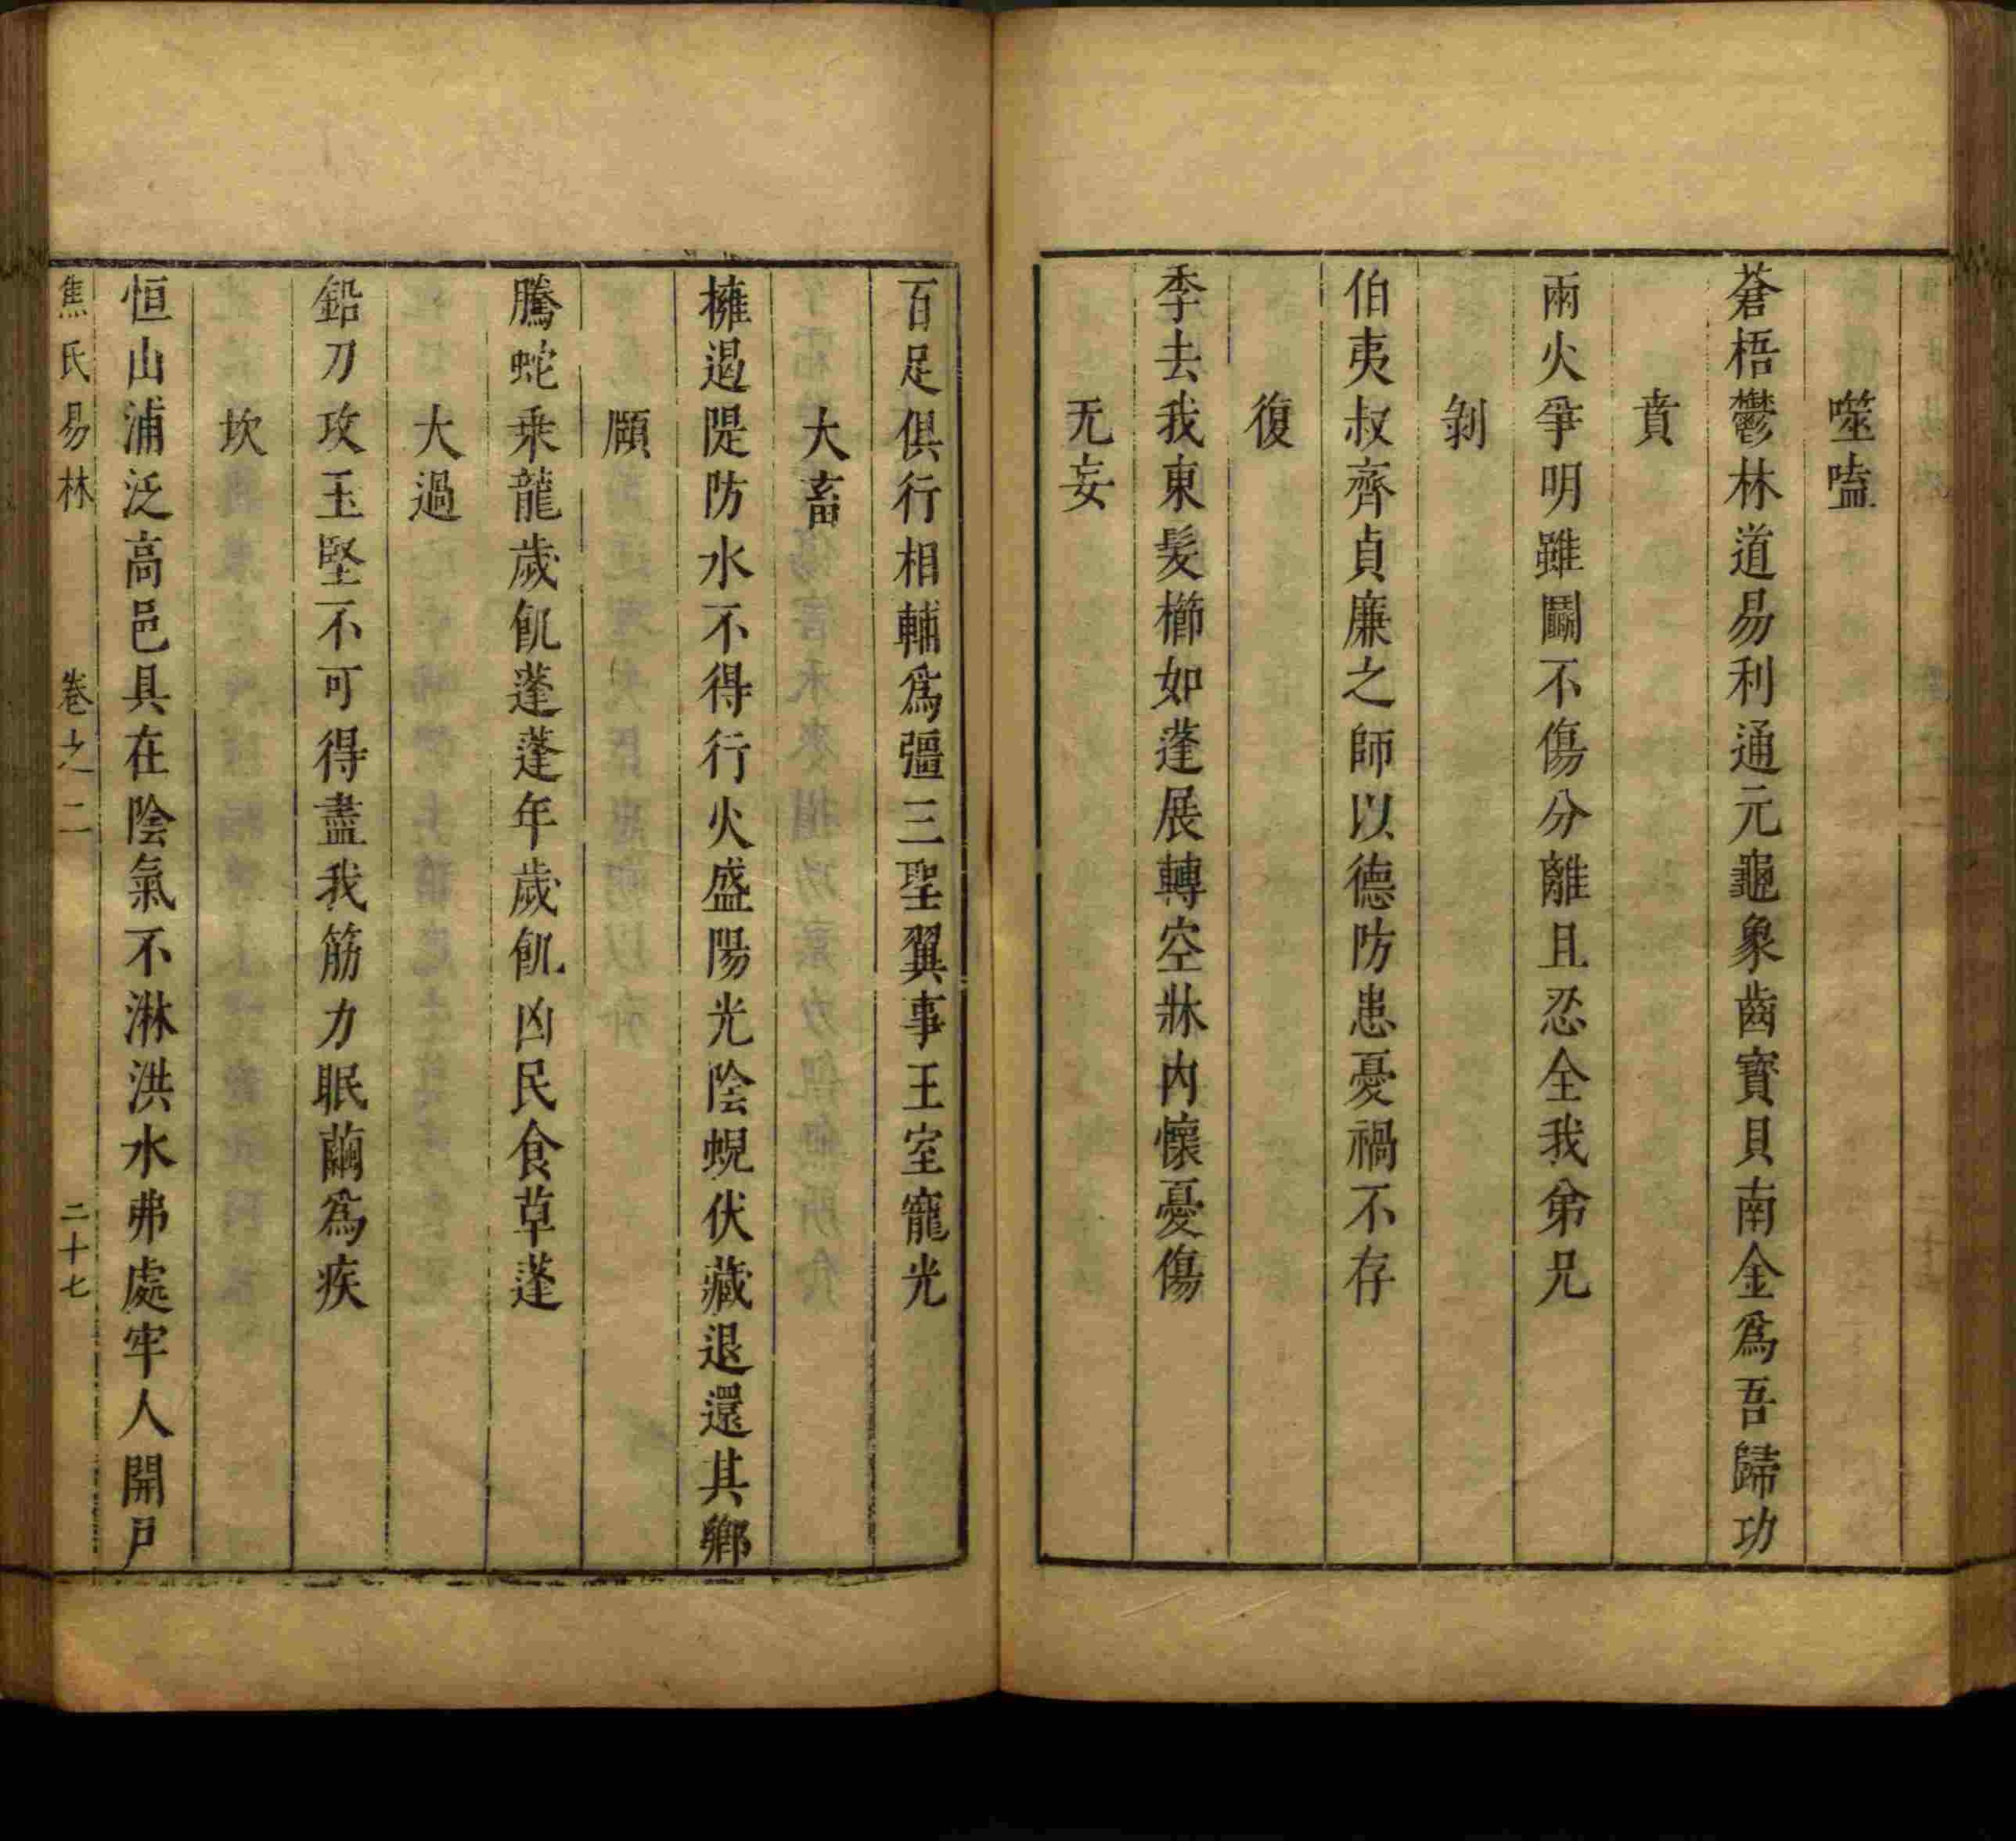 噬嗑
蒼梧鬱林道易利通元龜象齒寳貝南金爲吾歸功
賁
兩火爭明雖鬭不傷分離且忍全我弟兄
剝
伯夷叔齊貞廉之師以德防患憂禍不存
復
季去我東髮櫛如蓬展轉空牀内懷憂傷
无妄
百足俱行相輔爲彊三聖翼事王室寵光
大畜
擁遏隄防水不得行火盛陽光陰蜺伏藏退還其鄉
頤
騰蛇乗龍歲飢蓬蓬年歲飢凶民食草蓬
大過
鉛刀攻玉堅不可得盡我筋力眠繭爲疾
坎
恒山浦泛高邑具在陰氣不淋洪水弗處牢人開戸
焦氏易林 卷之二 二十七